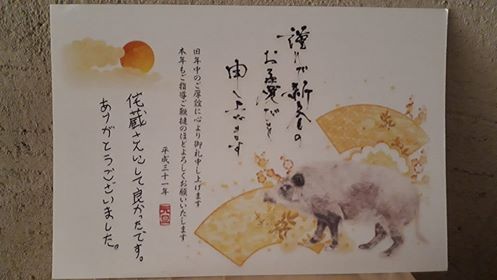 謹んで新年の
お慶びを
申し上げます
旧年中のご厚誼に心より御礼申し上げます
本年もご指導ご鞭撻のほどよろしくお願いいたします
平成三十一年
元旦
侘蔵さんいして良かったです。
ありがとうございました。